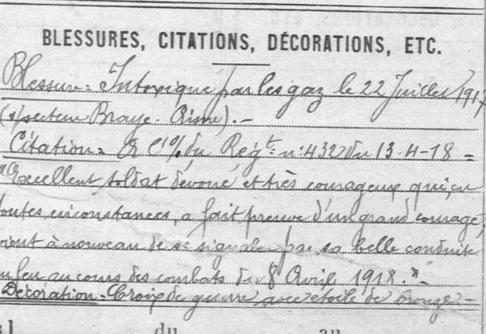 BLESSURES, CITATIONS, DÉCORATIONS, ETC.
Blessure = Intoxiqué par les gaz le 22 Juillet 1917
(s/secteur Braye - Aisne). -
Citation = à l'% du Régt n° 432 du 13-4-18 =
"Excellent soldat dévoué et très courageux qui, en
toutes circonstances, a fait preuve d'un grand courage,
vient à nouveau de se signaler par sa belle conduite
au feu au cours des combats du 8 Avril 1918."
Décoration = Croix de guerre avec étoile de bronze -
du au